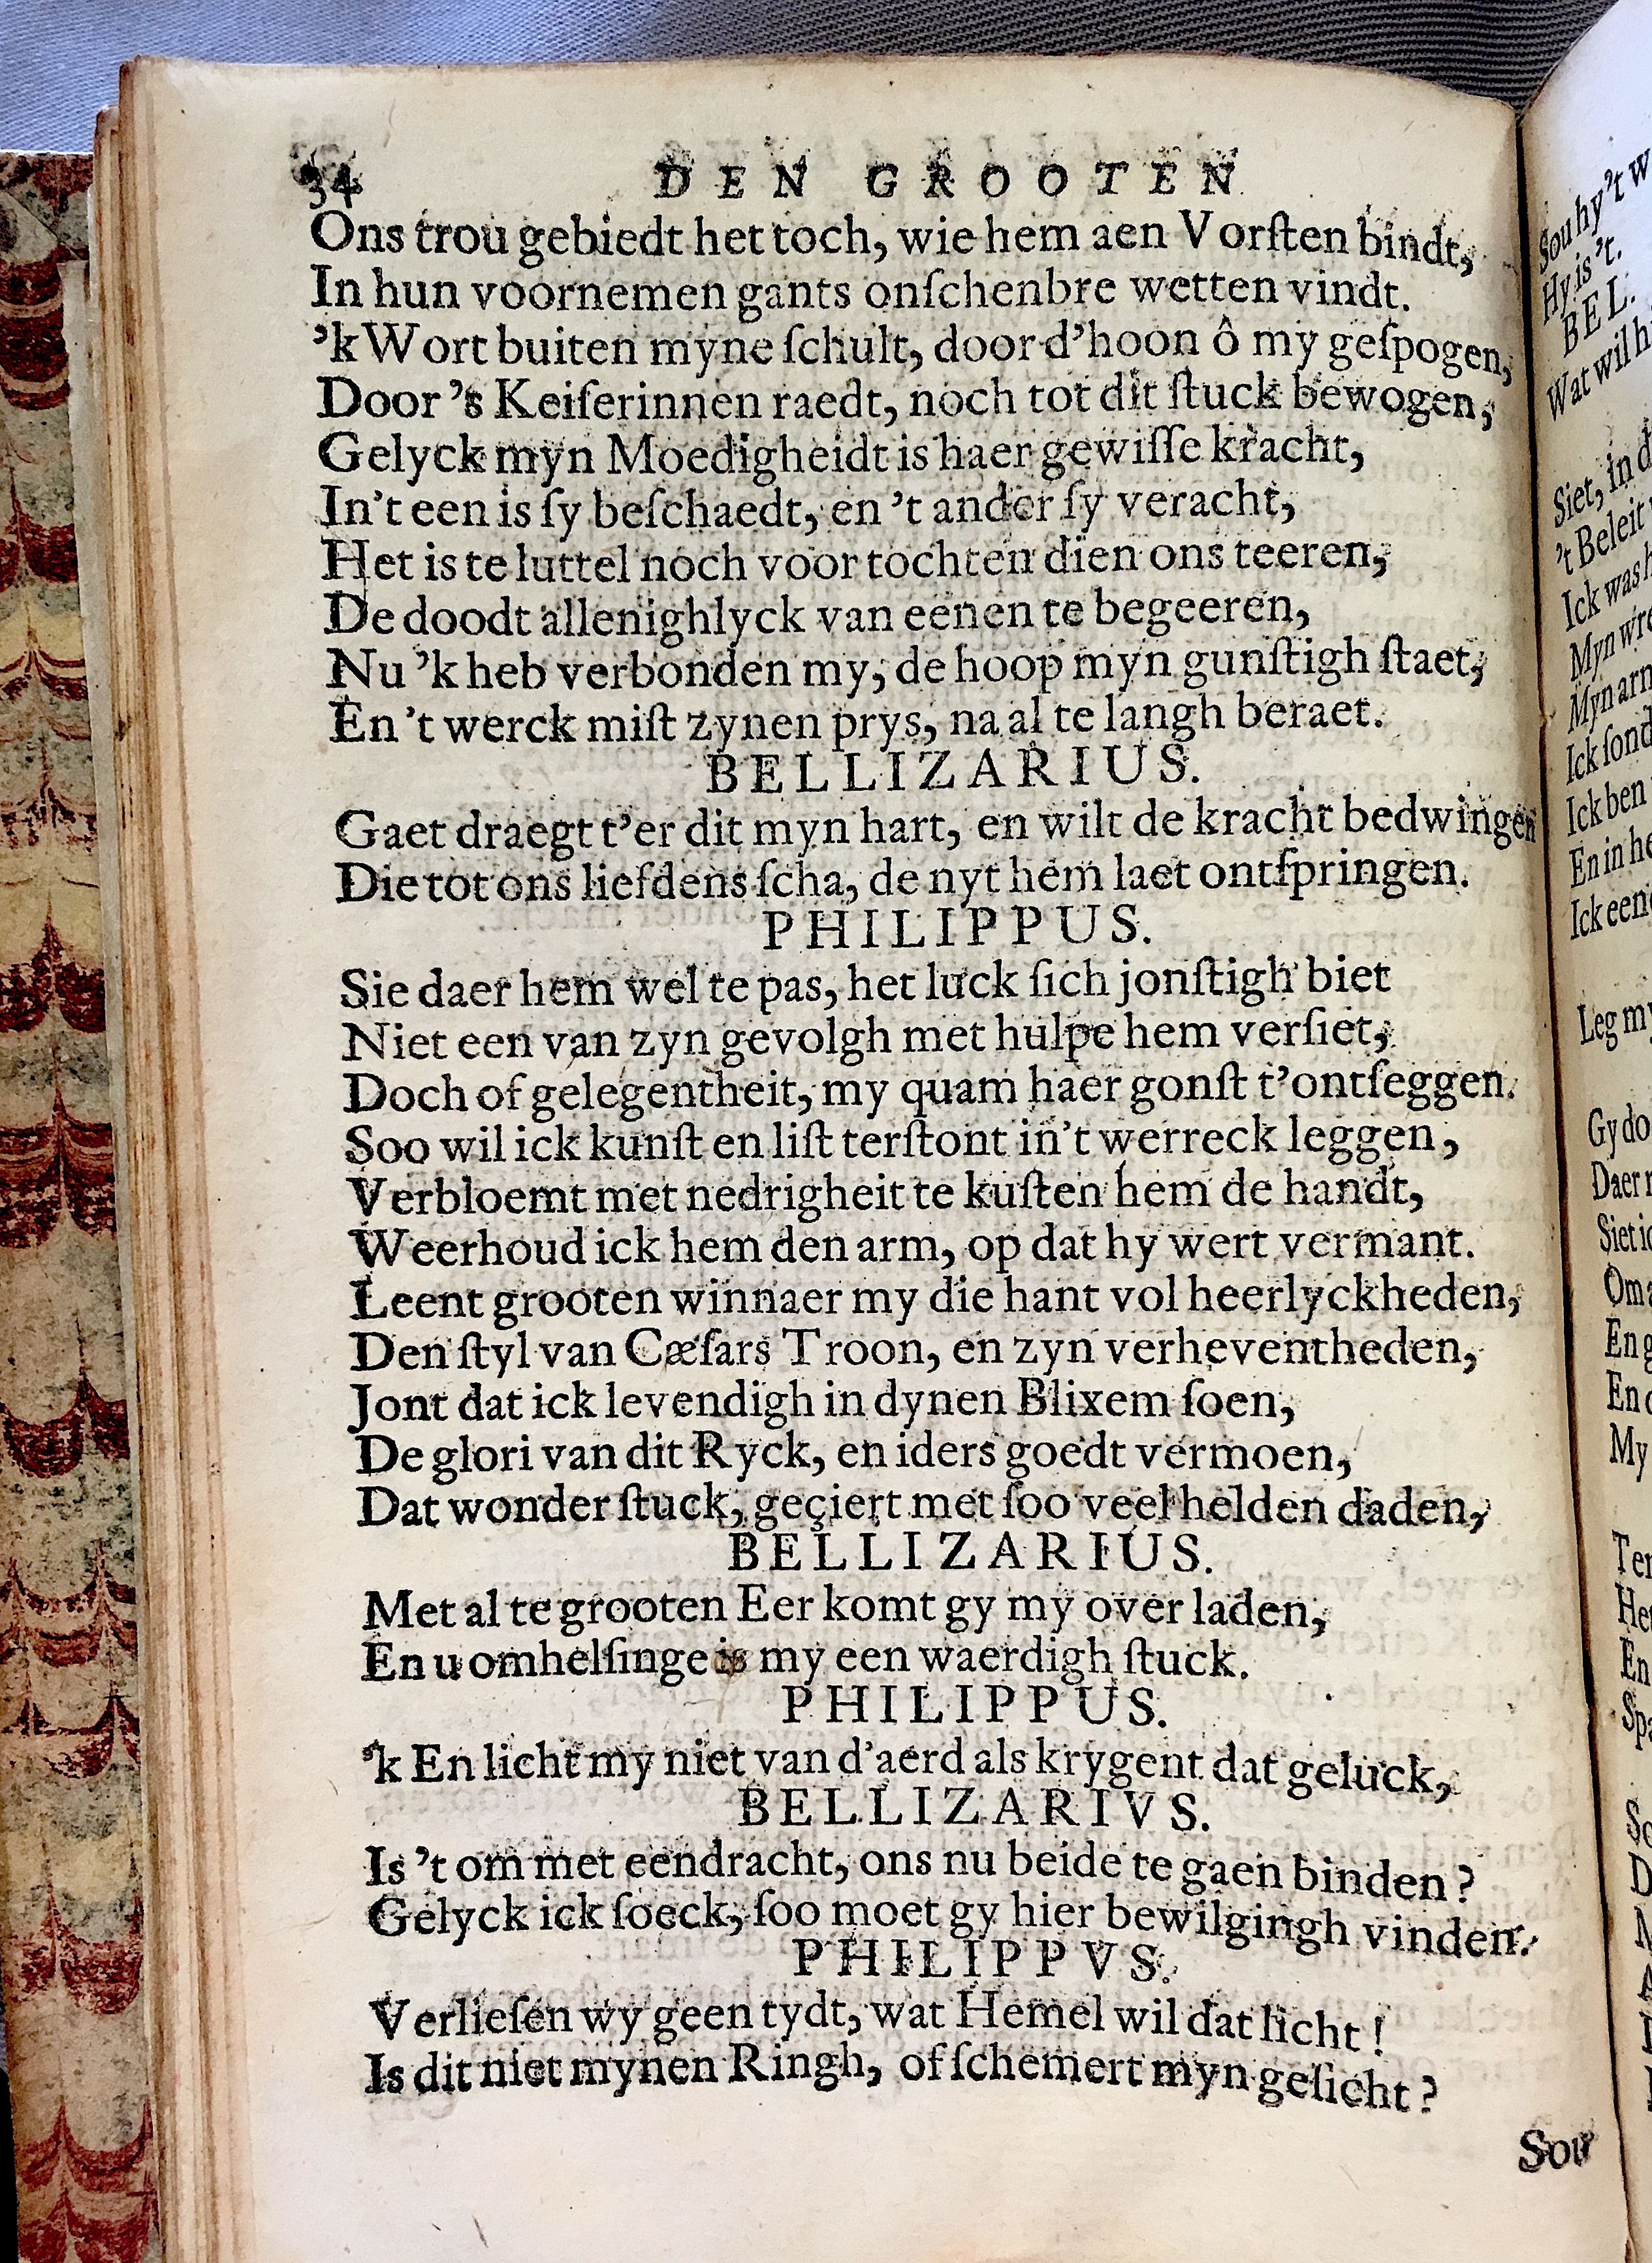 34 DEN GROOTEN
Ons trou gebiedt het toch, wie hem aen Vorſten bindt,
In hun voornemen gants onſchenbre wetten vindt.
’k Wort buiten myne ſchult, door d’hoon ô my geſpogen,
Door ’s Keiſerinnen raedt, noch tot dit ſtuck bewogen,
Gelyck myn Moedigheidt is haer gewiſſe kracht,
In’t een is ſy beſchaedt, en ’t ander ſy veracht,
Het is te luttel noch voor tochten dien ons teeren,
De doodt allenighlyck van eenen te begeeren,
Nu ’k heb verbonden my, de hoop myn gunſtigh ſtaet,
En ’t werck miſt zynen prys, na al te langh beraet.
BELLIZARIUS.
Gaet draegt t’er dit myn hart, en wilt de kracht bedwingen
Die tot ons liefdens ſcha, de nyt hem laet ontſpringen.
PHILIPPUS.
Sie daer hem wel te pas, het luck ſich jonſtigh biet
Niet een van zyn gevolgh met hulpe hem verſiet,
Doch of gelegentheit, my quam haer gonſt t’ontſeggen.
Soo wil ick kunſt en liſt terſtont in’t werreck leggen,
Verbloemt met nedrigheit te kuſten hem de handt,
Weerhoud ick hem den arm, op dat hy wert vermant.
Leent grooten winnaer my die hant vol heerlyckheden,
Den ſtyl van Cæſars Troon, en zyn verheventheden,
Jont dat ick levendigh in dynen Blixem ſoen,
De glori van dit Ryck, en iders goedt vermoen,
Dat wonder ſtuck, geçiert met ſoo veel helden daden,
BELLIZARIUS.
Met al te grooten Eer komt gy my over laden,
En u omhelſinge is my een waerdigh ſtuck.
PHILIPPUS.
’k En licht my niet van d’aerd als krygent dat geluck,
BELLIZARIVS.
Is ’t om met eendracht, ons nu beide te gaen binden?
Gelyck ick ſoeck, ſoo moet gy hier bewilgingh vinden.
PHILIPPVS.
Verlieſen wy geen tydt, wat Hemel wil dat licht!
Is dit niet mynen Ringh, of ſchemert myn geſicht?
Sou
Sou hy ’t
Hy is ’t.
BEL.
Wat wil
Siet, in
’t Beleit
Ick was
Myn
Myn
Ick
Ick ben
En in
Ick een
Leg
Gy
Daer
Siet
En
My
En